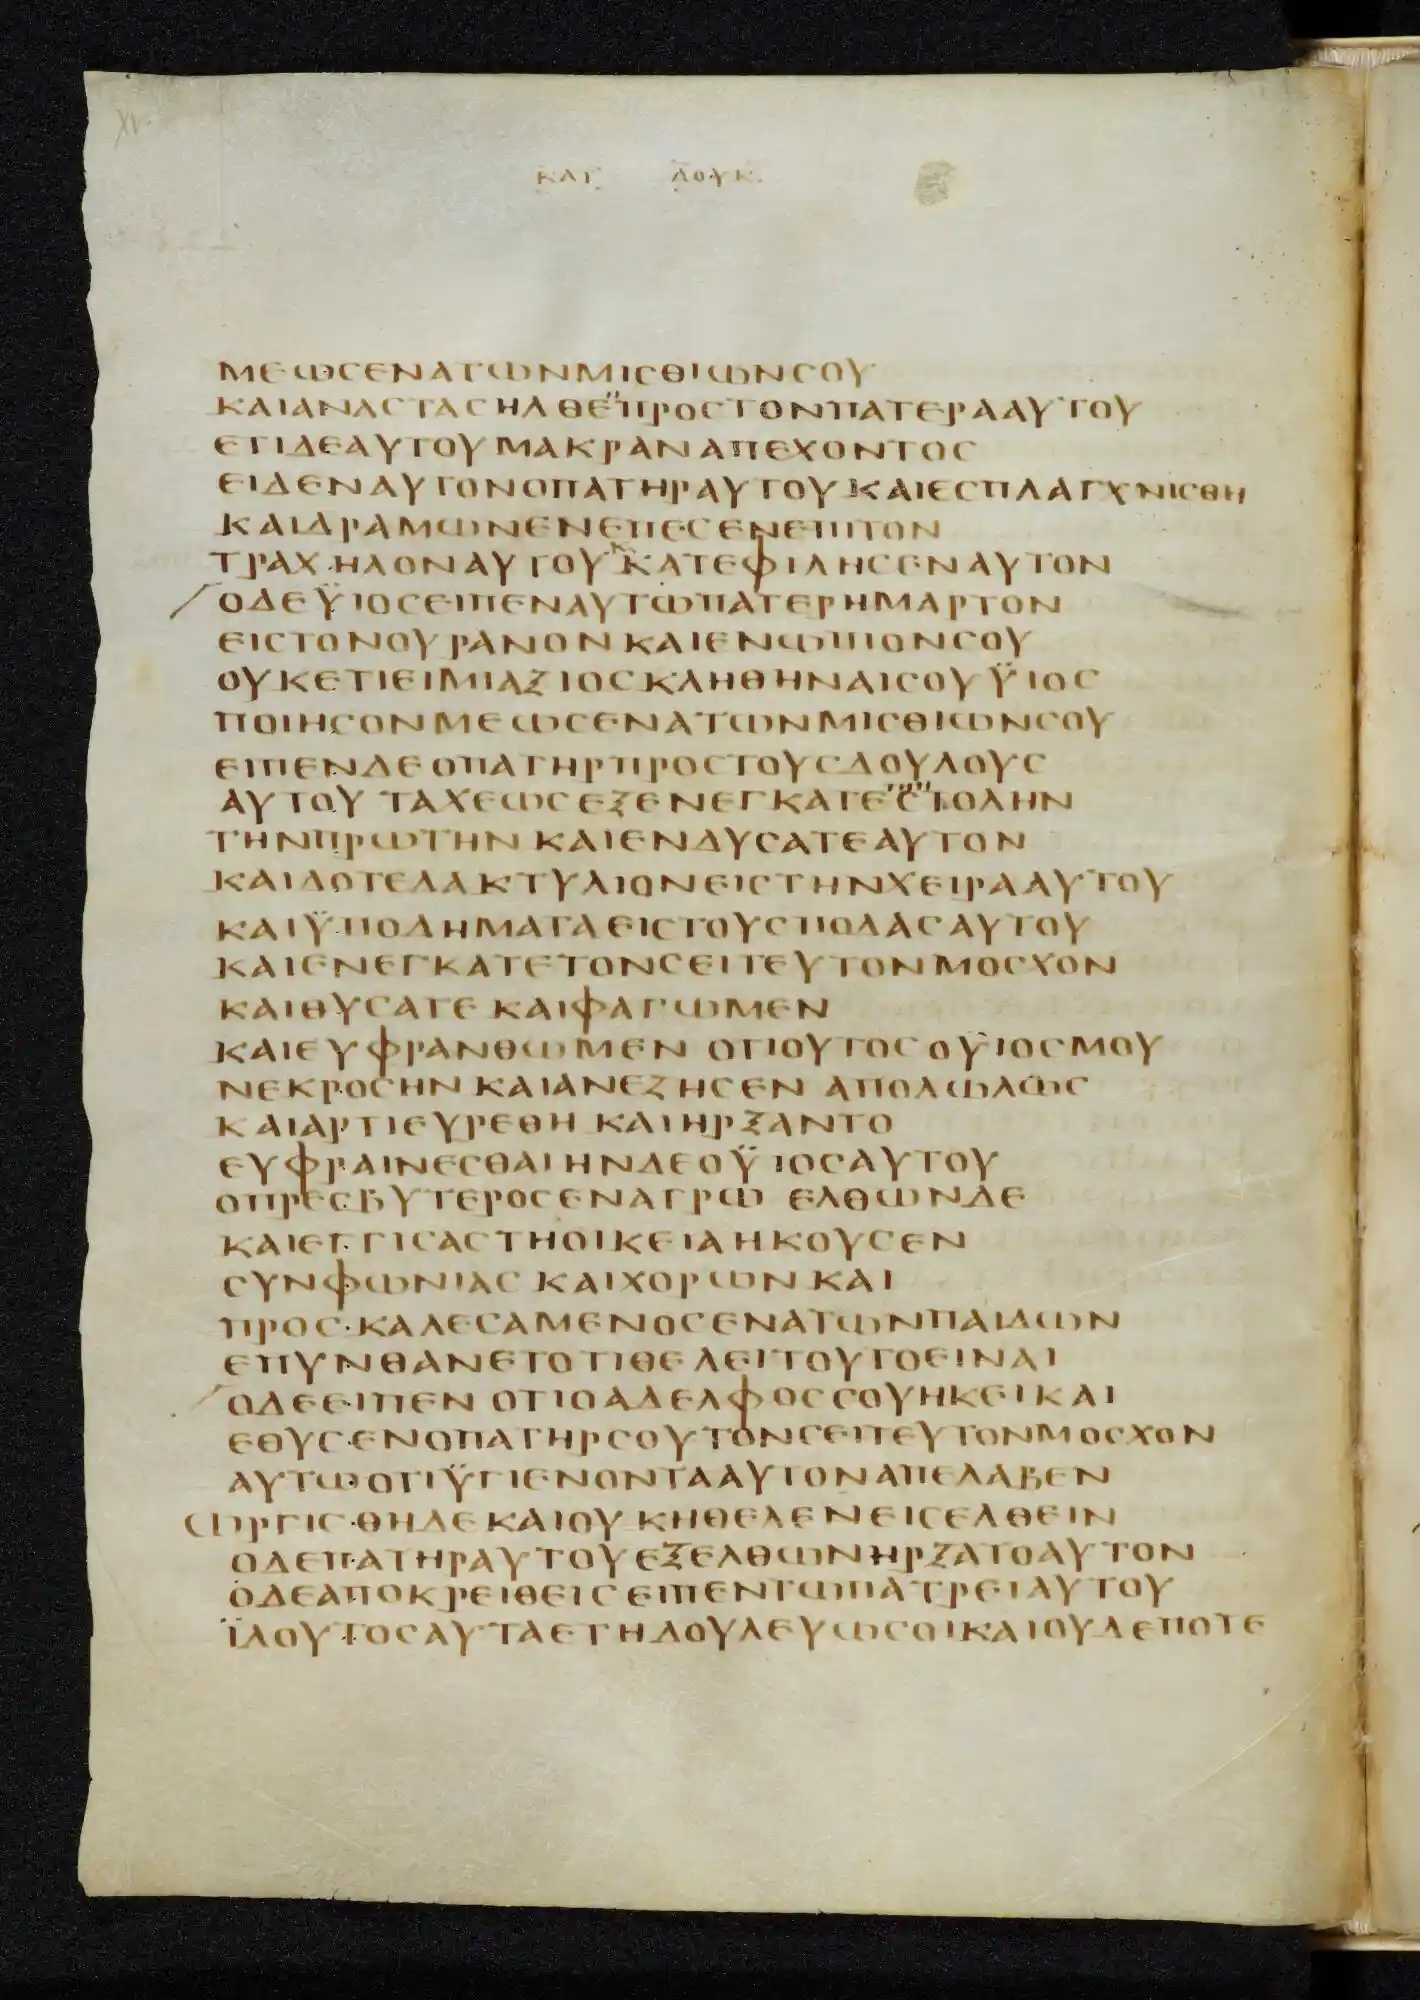 ΚΑΤ ΛΟΥΚ
ΜΕΩСΕΝΑΤΩΝΜΙСΘΙΩΝСΟΥ
ΚΑΙΑΝΑСΤΑСΗΛΘΕΠΡΟСΤΟΝΠΑΤΕΡΑΑΥΤΟΥ
ΕΤΙΔΕΑΥΤΟΥΜΑΚΡΑΝΑΠΕΧΟΝΤΟС
ΕΙΔΕΝΑΥΤΟΝΟΠΑΤΗΡΑΥΤΟΥΚΑΙΕСΠΛΑΓΧΝΙСΘΗ
ΚΑΙΔΡΑΜΩΝΕΝΕΠΕСΕΝΕΠΙΤΟΝ
ΤΡΑΧΗΛΟΝΑΥΤΟΥΚΑΤΕΦΙΛΗСΕΝΑΥΤΟΝ
ΟΔΕΫΙΟСΕΙΠΕΝΑΥΤΩΠΑΤΕΡΗΜΑΡΤΟΝ
ΕΙСΤΟΝΟΥΡΑΝΟΝΚΑΙΕΝΩΠΙΟΝСΟΥ
ΟΥΚΕΤΙΕΙΜΙΑΞΙΟСΚΛΗΘΗΝΑΙСΟΥΫΙΟС
ΠΟΙΗСΟΝΜΕΩСΕΝΑΤΩΝΜΙСΘΙΩΝСΟΥ
ΕΙΠΕΝΔΕΟΠΑΤΗΡΠΡΟСΤΟΥСΔΟΥΛΟΥС
ΑΥΤΟΥ ΤΑΧΕΩСΕΞΕΝΕΓΚΑΤΕСΤΟΛΗΝ
ΤΗΝΠΡΩΤΗΝ ΚΑΙΕΝΔΥСΑΤΕΑΥΤΟΝ
ΚΑΙΔΟΤΕΔΑΚΤΥΛΙΟΝΕΙСΤΗΝΧΕΙΡΑΑΥΤΟΥ
ΚΑΙΫΠΟΔΗΜΑΤΑΕΙСΤΟΥСΠΟΔΑСΑΥΤΟΥ
ΚΑΙΕΝΕΓΚΑΤΕΤΟΝСΕΙΤΕΥΤΟΝΜΟСΧΟΝ
ΚΑΙΘΥСΑΤΕ ΚΑΙΦΑΓΩΜΕΝ
ΚΑΙΕΥΦΡΑΝΘΩΜΕΝ ΟΤΙΟΥΤΟСΟΫΙΟСΜΟΥ
ΝΕΚΡΟСΗΝ ΚΑΙΑΝΕΖΗСΕΝ ΑΠΟΛΩΛΩС
ΚΑΙΑΡΤΙΕΥΡΕΘΗ ΚΑΙΗΡΞΑΝΤΟ
ΕΥΦΡΑΙΝΕСΘΑΙΗΝΔΕΟΫΙΟСΑΥΤΟΥ
ΟΠΡΕСΒΥΤΕΡΟСΕΝΑΓΡΩ ΕΛΘΩΝΔΕ
ΚΑΙΕΓΓΙСΑСΤΗΟΙΚΕΙΑΗΚΟΥСΕΝ
СΥΝΦΩΝΙΑС ΚΑΙΧΟΡΩΝΚΑΙ
ΠΡΟСΚΑΛΕСΑΜΕΝΟСΕΝΑΤΩΝΠΑΙΔΩΝ
ΕΠΥΝΘΑΝΕΤΟΤΙΘΕΛΕΙΤΟΥΤΟΕΙΝΑΙ
ΟΔΕΕΙΠΕΝ ΟΤΙΟΑΔΕΛΦΟССΟΥΗΚΕΙΚΑΙ
ΕΘΥСΕΝΟΠΑΤΗΡСΟΥΤΟΝСΕΙΤΕΥΤΟΝΜΟСΧΟΝ
ΑΥΤΩΟΤΙΫΓΙΕΝΟΝΤΑΑΥΤΟΝΑΠΕΛΑΒΕΝ
ΩΡΓΙСΘΗΔΕΚΑΙΟΥΚΗΘΕΛΕΝΕΙСΕΛΘΕΙΝ
ΟΔΕΠΑΤΗΡΑΥΤΟΥΕΞΕΛΘΩΝΗΡΞΑΤΟΑΥΤΟΝ
ΟΔΕΑΠΟΚΡΕΙΘΕΙСΕΙΠΕΝΤΩΠΑΤΡΕΙΑΥΤΟΥ
ΪΔΟΥΤΟСΑΥΤΑΕΤΗΔΟΥΛΕΥΩСΟΙΚΑΙΟΥΔΕΠΟΤΕ